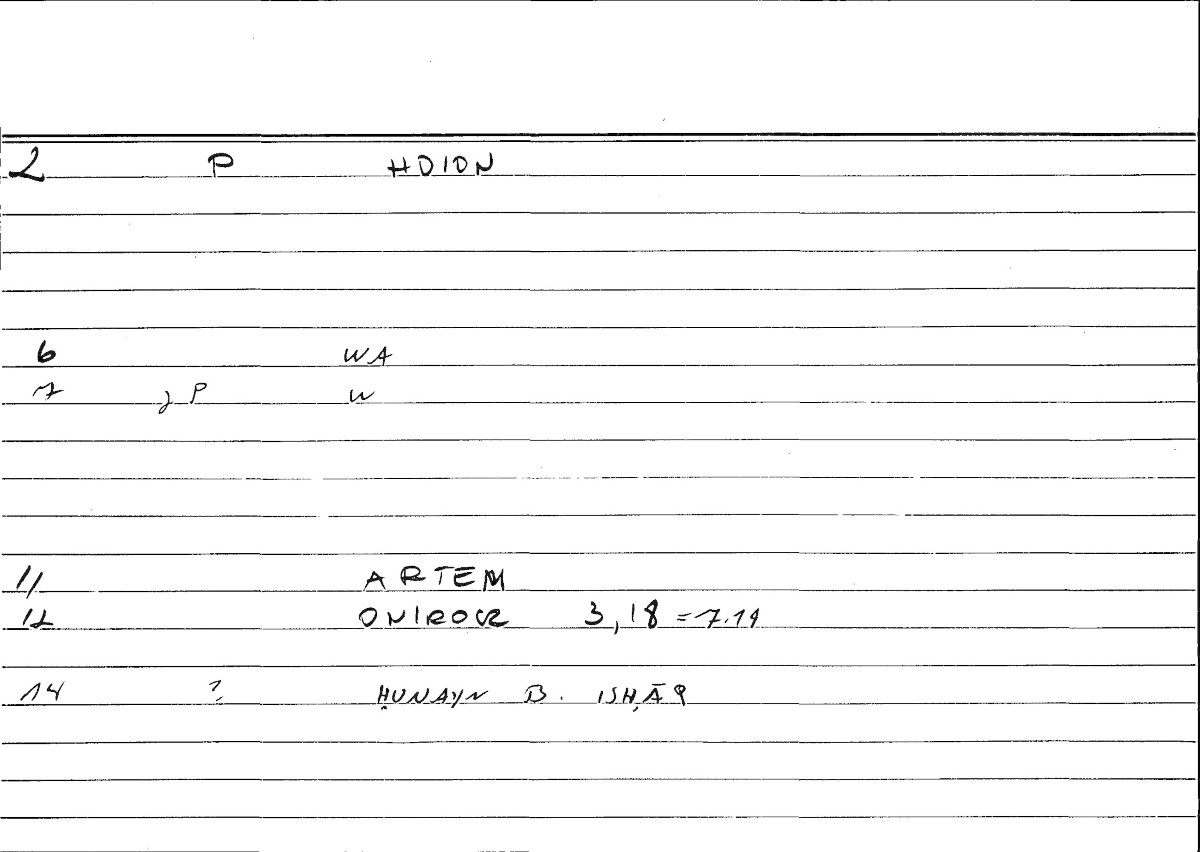 2 P HDION
6 WA
7 P W
11 ARTEM
12 ONIROCR 3,18 = 7.19
14 ? ḤUNAYN B. ISḤĀQ